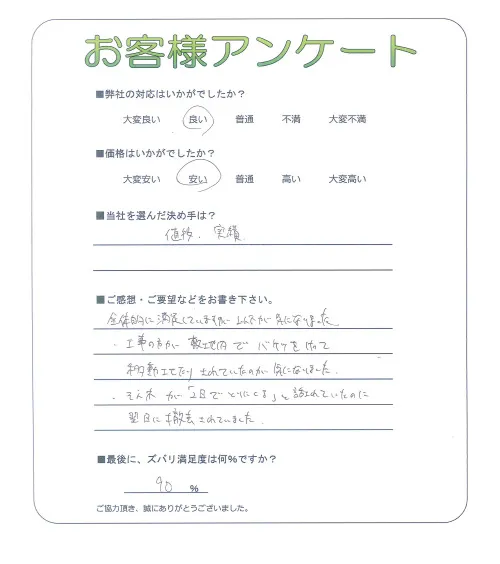 お客様アンケート
■弊社の対応はいかがでしたか？
大変良い 良い 普通 不満 大変不満
■価格はいかがでしたか？
大変安い 安い 普通 高い 大変高い
■当社を選んだ決め手は？
値段、実績
■ご感想・ご要望などをお書き下さい。
全体的に満足していますが 気になりました
・工事の方が 敷地内で バケツを
移動 されていたのが気になりました。
・ が「2日で 」と 言われていたのに
翌日に撤去されていました。
■最後に、ズバリ満足度は何％ですか？
90 ％
ご協力頂き、誠にありがとうございました。